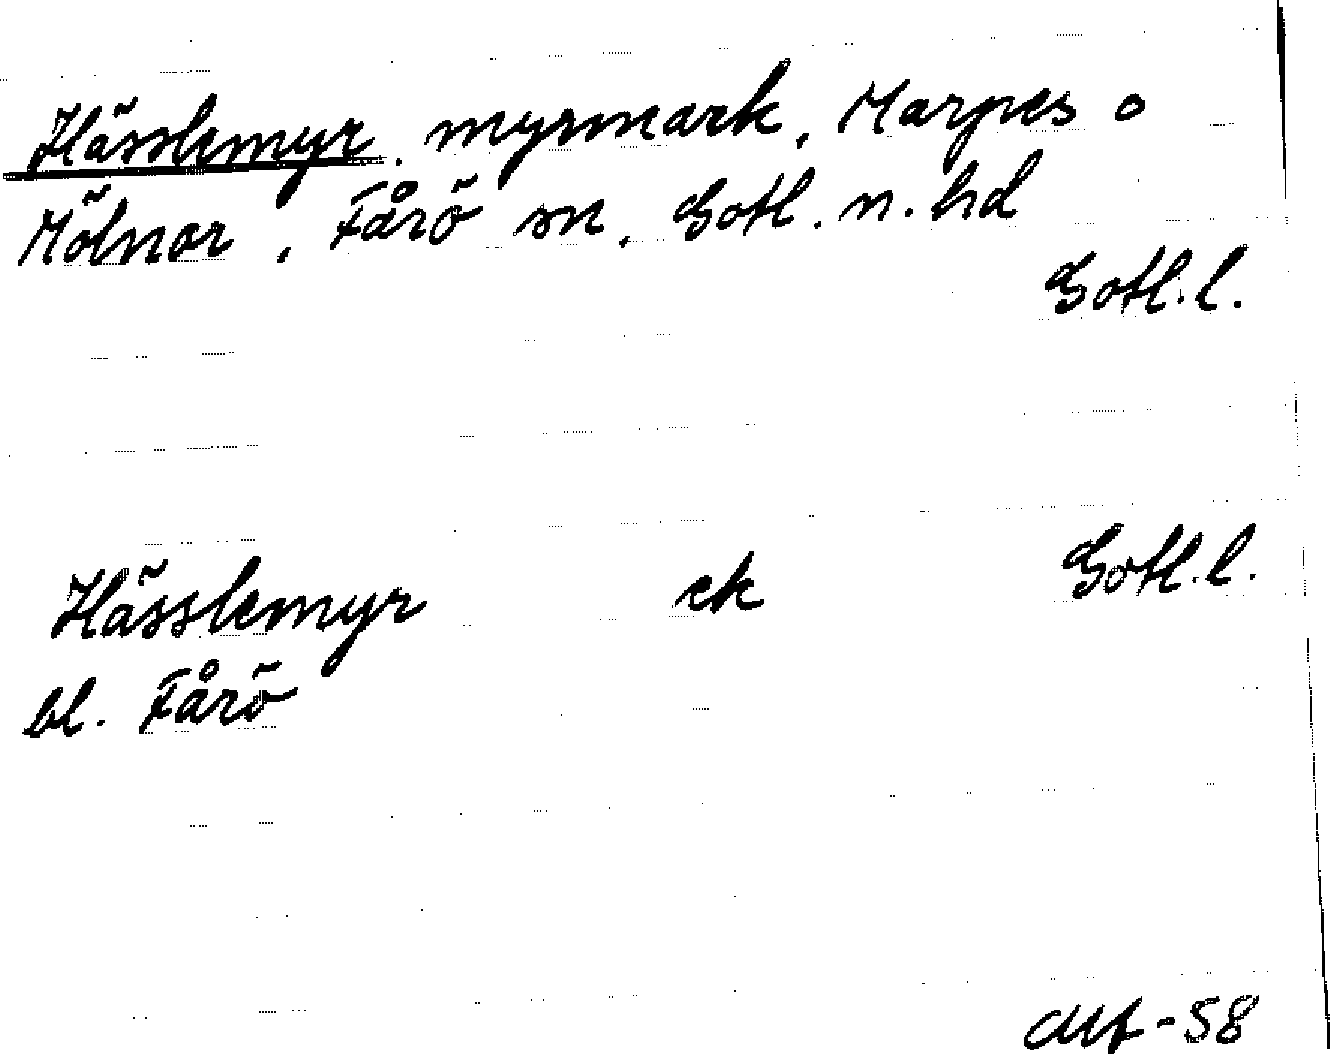 Hässlemyr, myrmark, Marpes o
Mölnor, Fårö sn, Gotl. n. hd
Gotl. l.
Hässlemyr ek Gotl. l.
bl. Fårö
-58